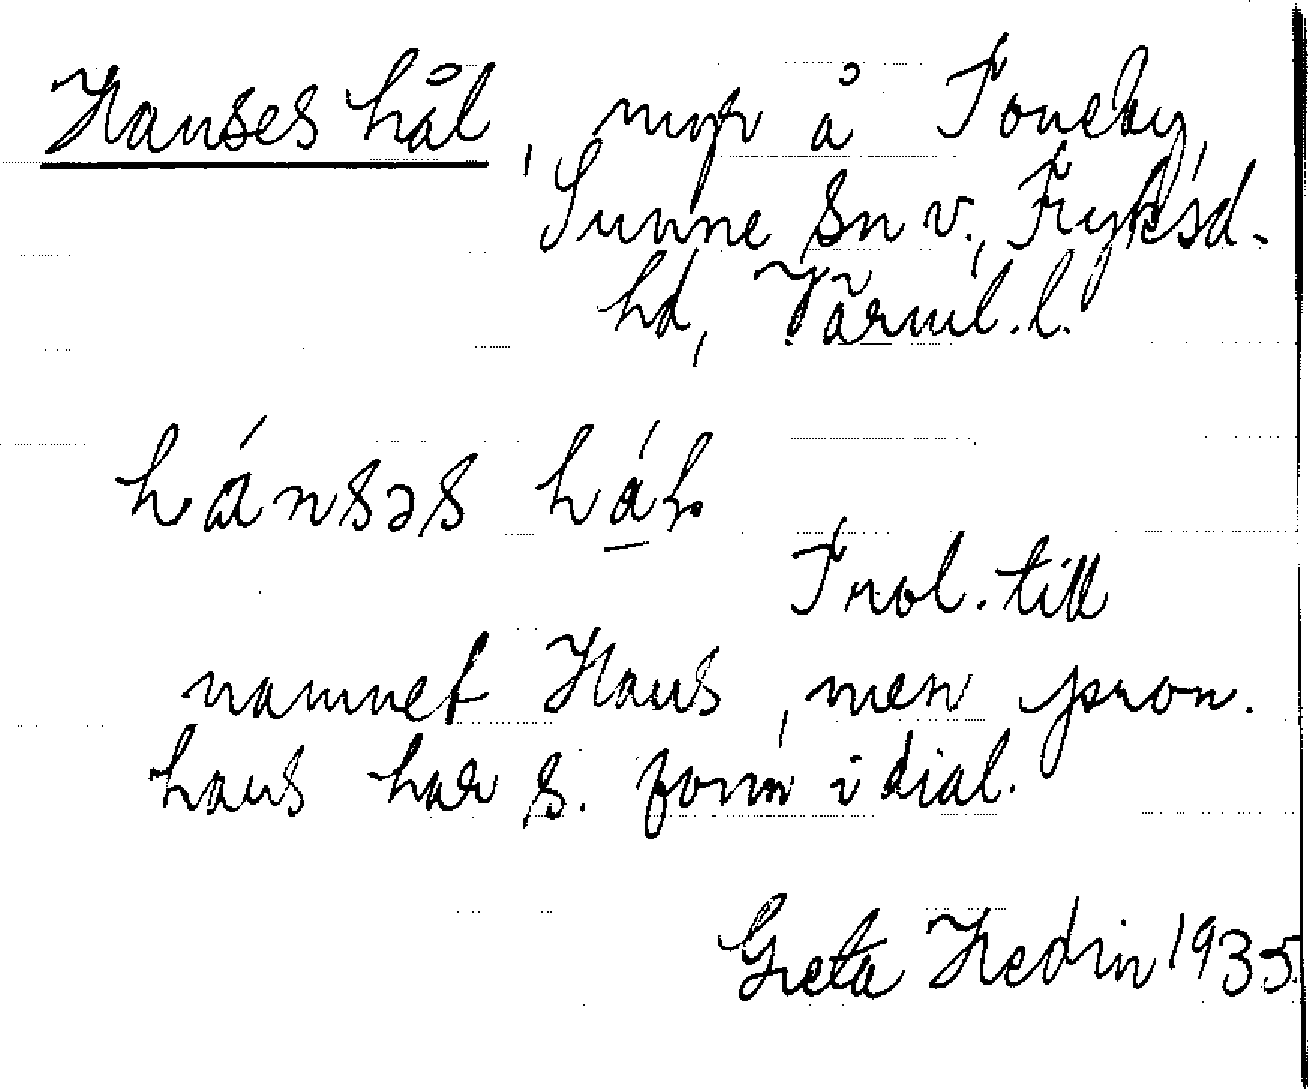 Hanses hål, myr å Toneby,
Sunne sn v., Fryksd.
hd, Värml. l.
hánsəs hál.
Trol. till
namnet Hans, men pron.
hans har s. form i dial.
Greta Hedin 1935.